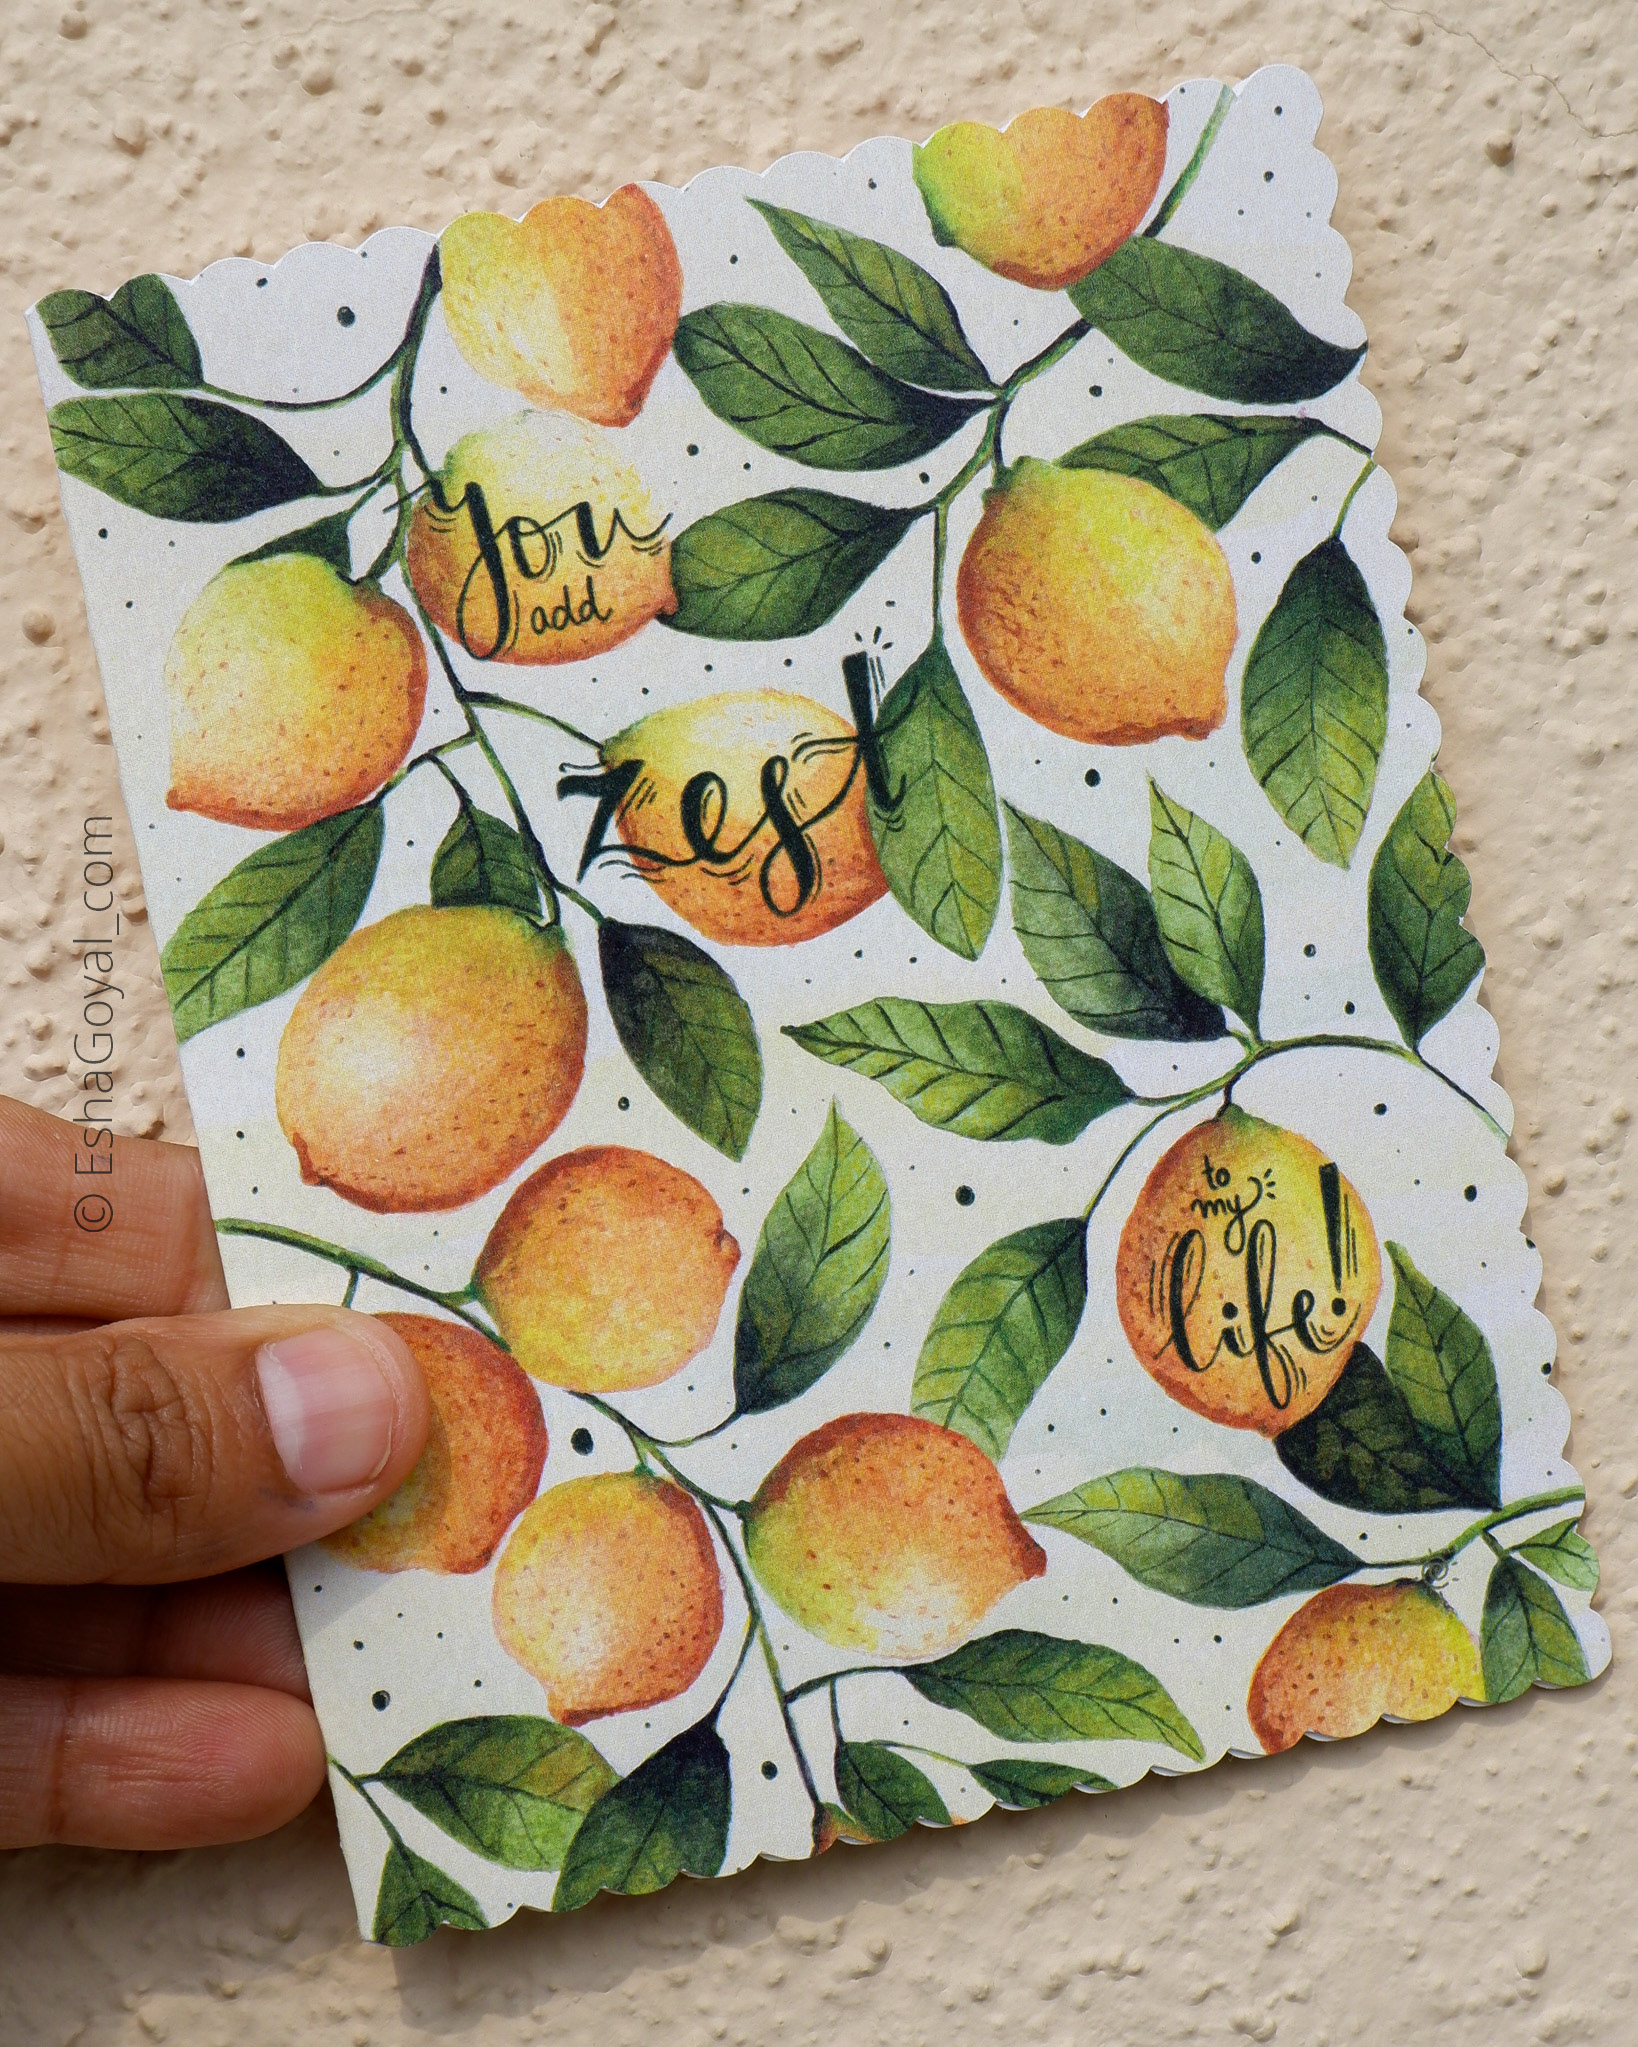 you
add
zest
to
my
life!
© EshaGoyal_com